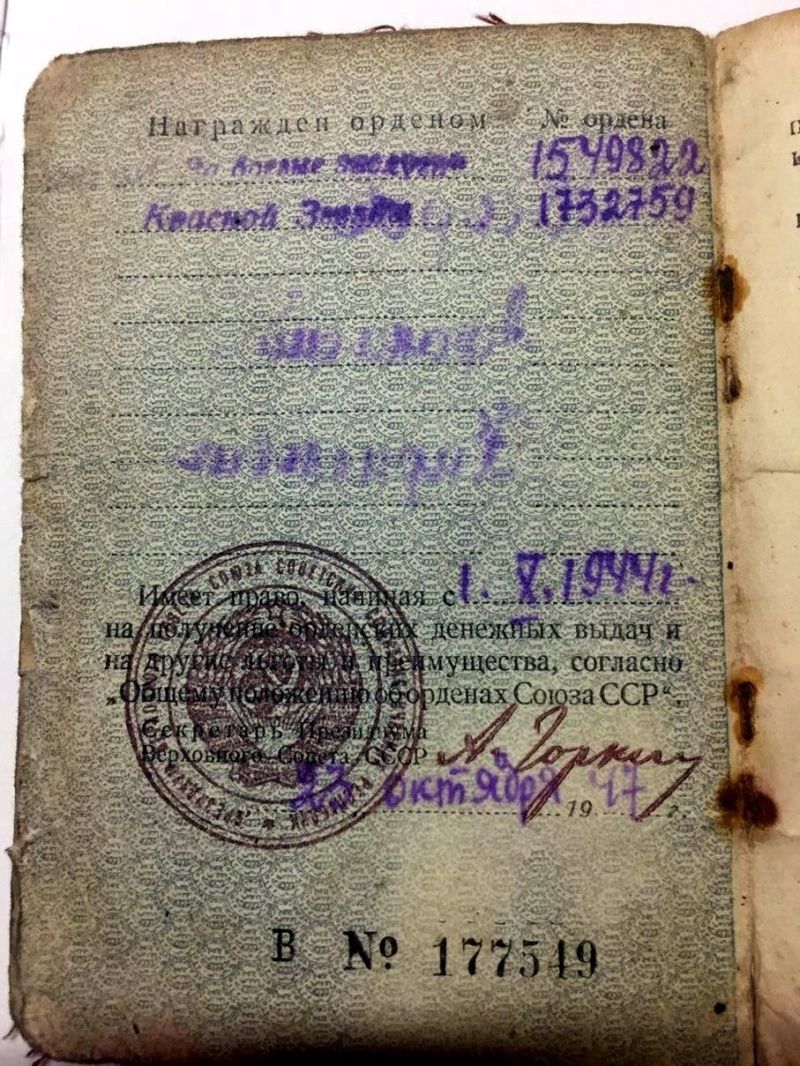 Награжден орденом № ордена
За боевые заслуги 1549822
Красной Звезды 1732759
Имеет право, начиная с 1. X. 1944 г.
на получение орденских денежных выдач и
на другие льготы и преимущества, согласно
„Общему положению об орденах Союза ССР“.
Секретарь Президиума
Верховного Совета СССР А. Горкин
23 октября 1947 г.
В № 177549